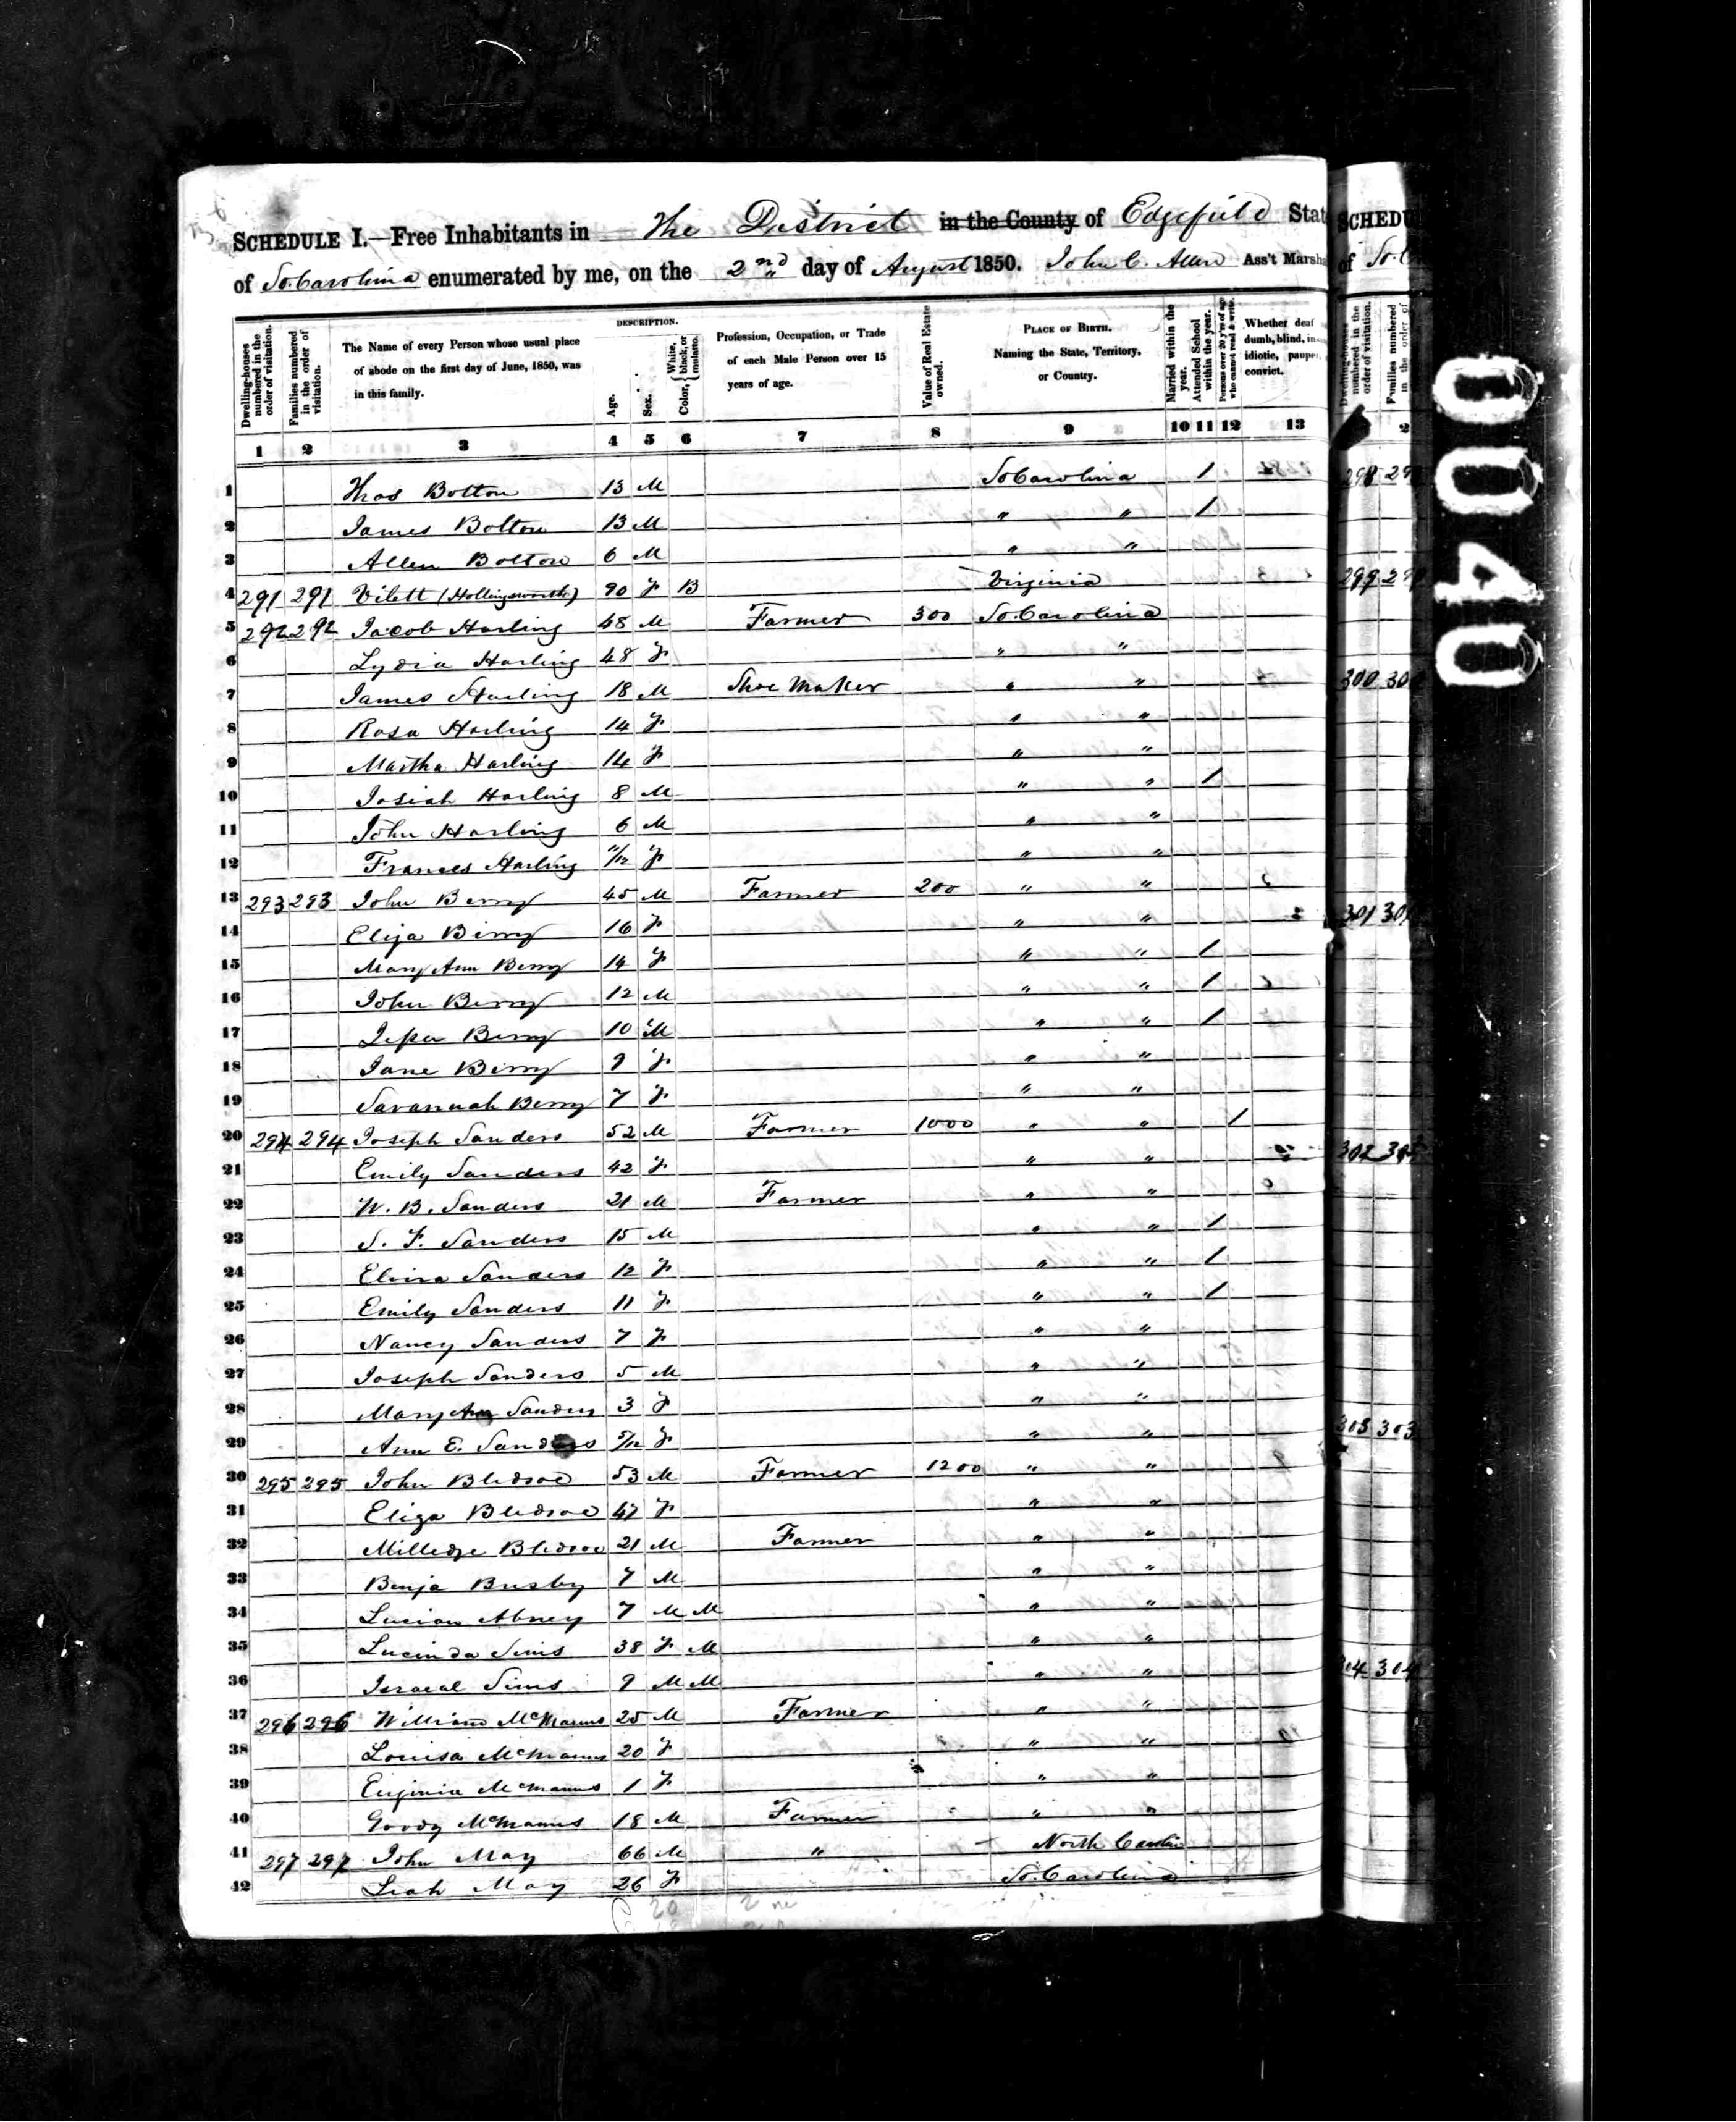 SCHEDULE I.—Free Inhabitants in The District in the County of Edgefield Stat
of So. Carolina enumerated by me, on the 2nd day of August 1850. John C. Allen Ass't Marsha
SCHEDU
of So. C
Dwelling-houses numbered in the order of visitation.
Families numbered in the order of visitation.
The Name of every Person whose usual place of abode on the first day of June, 1850, was in this family.
DESCRIPTION.
Age.
Sex.
Color, { White, black, or mulatto.
Profession, Occupation, or Trade of each Male Person over 15 years of age.
Value of Real Estate owned.
PLACE OF BIRTH. Naming the State, Territory, or Country.
Married within the year.
Attended School within the year.
Persons over 20 y'rs of age who cannot read & write.
Whether deaf dumb, blind, in idiotic, pauper, convict.
1 2 3 4 5 6 7 8 9 10 11 12 13
1 Thos Bolton 13 M So Carolina /
2 James Bolton 13 M " " /
3 Allen Bolton 6 M " "
4 291 291 Vilett (Hollingsworth) 90 F B Virginia
5 292 292 Jacob Harling 48 M Farmer 300 So. Carolina
6 Lydia Harling 48 F " "
7 James Harling 18 M Shoe Maker " "
8 Rosa Harling 14 F " "
9 Martha Harling 14 F " "
10 Josiah Harling 8 M " " /
11 John Harling 6 M " "
12 Frances Harling 11/12 F " "
13 293 293 John Berry 45 M Farmer 200 " "
14 Eliza Berry 16 F " "
15 Mary Ann Berry 14 F " " /
16 John Berry 12 M " " /
17 Berry 10 M " " /
18 Jane Berry 9 F " "
19 Savannah Berry 7 F " "
20 294 294 Joseph Sanders 52 M Farmer 1000 " " /
21 Emily Sanders 42 F " "
22 W. B. Sanders 21 M Farmer " "
23 S. F. Sanders 15 M " " /
24 Elvira Sanders 12 F " " /
25 Emily Sanders 11 F " " /
26 Nancy Sanders 7 F " "
27 Joseph Sanders 5 M " "
28 Mary Ann Sanders 3 F " "
29 Ann E. Sanders F " "
30 295 295 John Bledsoe 53 M Farmer 1200 " "
31 Eliza Bledsoe 47 F " "
32 Milledge Bledsoe 21 M Farmer " "
33 Benja Busby 7 M " "
34 Lucian Abney 7 M M " "
35 Lucinda Sims 38 F M " "
36 Israeal Sims 9 M M " "
37 296 296 William McManus 25 M Farmer " "
38 Louisa McManus 20 F " "
39 Euginia McManus 1 F " "
40 McManus 18 M Farmer " "
41 297 297 John May 66 M " North Carolin
42 Leah May 26 F So. Carolina
Dwelling-houses numbered in the order of visitation.
Families numbered in the order of
2
298
299
300
301
302
303 303
304
0040